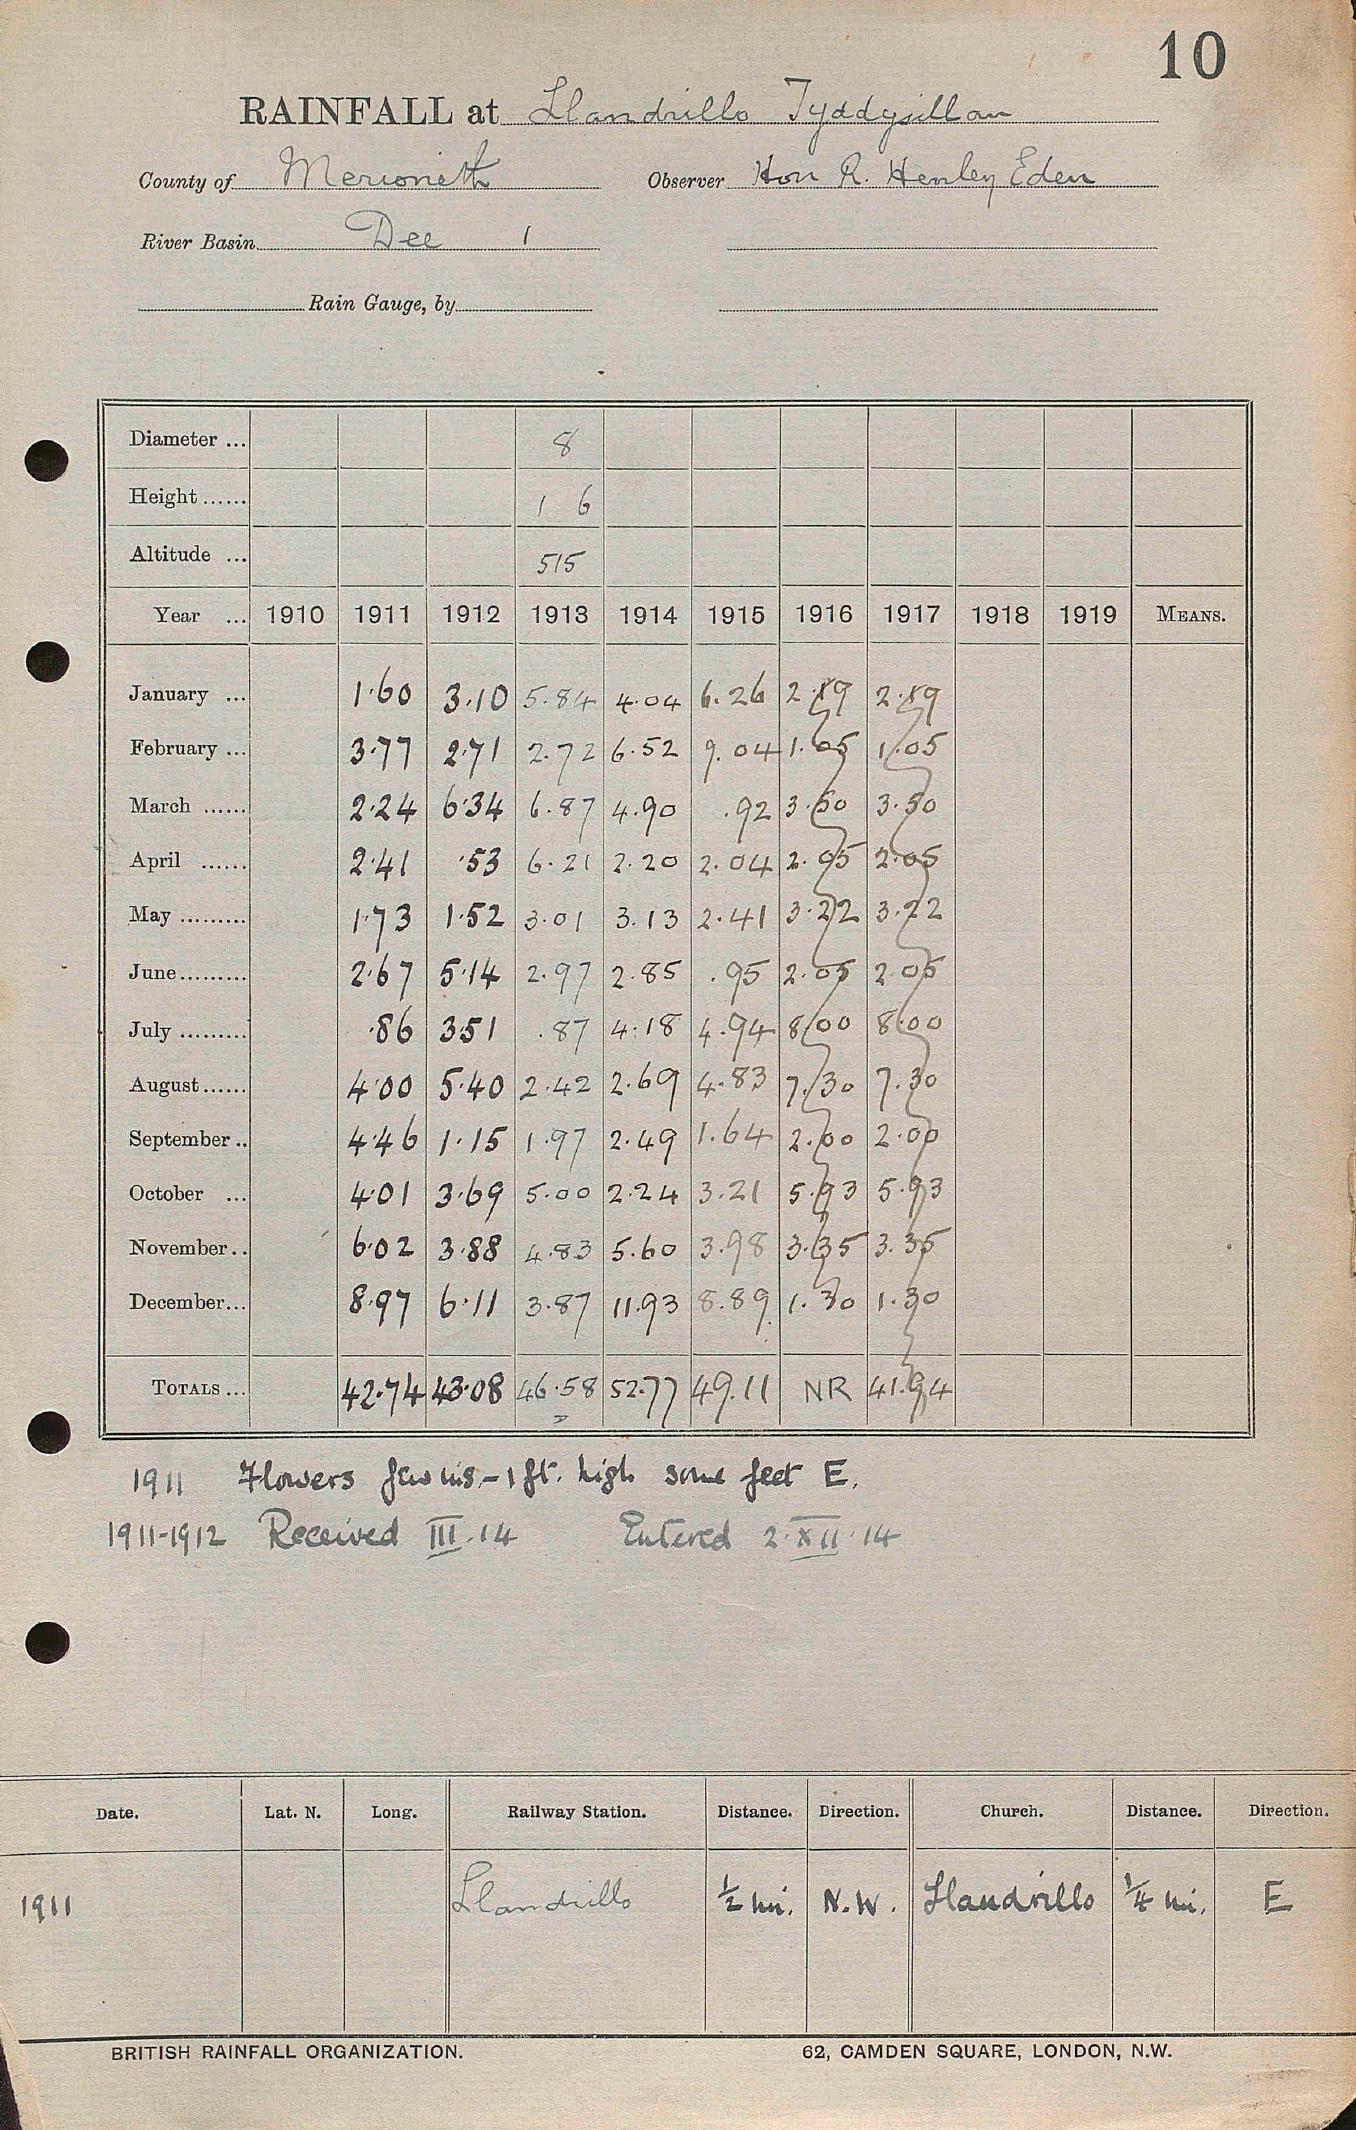 10
RAINFALL at Llandrillo Tyddyllan
County of Merioneth Observer Hon R. Henley Eden
River Basin Dee 1
Rain Gauge, by
Diameter ... 8
Height ...... 1 6
Altitude ... 515
Year ... 1910 1911 1912 1913 1914 1915 1916 1917 1918 1919 MEANS.
January ... 1.60 3.10 5.84 4.04 6.26 2.89 2.89
February ... 3.77 2.71 2.72 6.52 9.04 1.05 1.05
March ...... 2.24 6.34 6.87 4.90 .92 3.50 3.50
April ...... 2.41 .53 6.21 2.20 2.04 2.95 2.05
May ......... 1.73 1.52 3.01 3.13 2.41 3.22 3.22
June ......... 2.67 5.14 2.97 2.85 .95 2.05 2.05
July ......... .86 3.51 .87 4.18 4.94 8.00 8.00
August ...... 4.00 5.40 2.42 2.69 4.83 7.30 7.30
September .. 4.46 1.15 1.97 2.49 1.64 2.00 2.00
October ... 4.01 3.69 5.00 2.24 3.21 5.93 5.93
November .. 6.02 3.88 4.83 5.60 3.98 3.35 3.35
December ... 8.97 6.11 3.87 11.93 8.89 1.30 1.30
TOTALS ... 42.74 43.08 46.58 52.77 49.11 NR 41.94
1911 Flowers few ins - 1 ft. high some feet E.
1911-1912 Received III.14 Entered 2.XII.14
Date. Lat. N. Long. Railway Station. Distance. Direction. Church. Distance. Direction.
1911 Llandrillo ½ mi. N.W. Llandrillo ¼ mi. E
BRITISH RAINFALL ORGANIZATION. 62, CAMDEN SQUARE, LONDON, N.W.